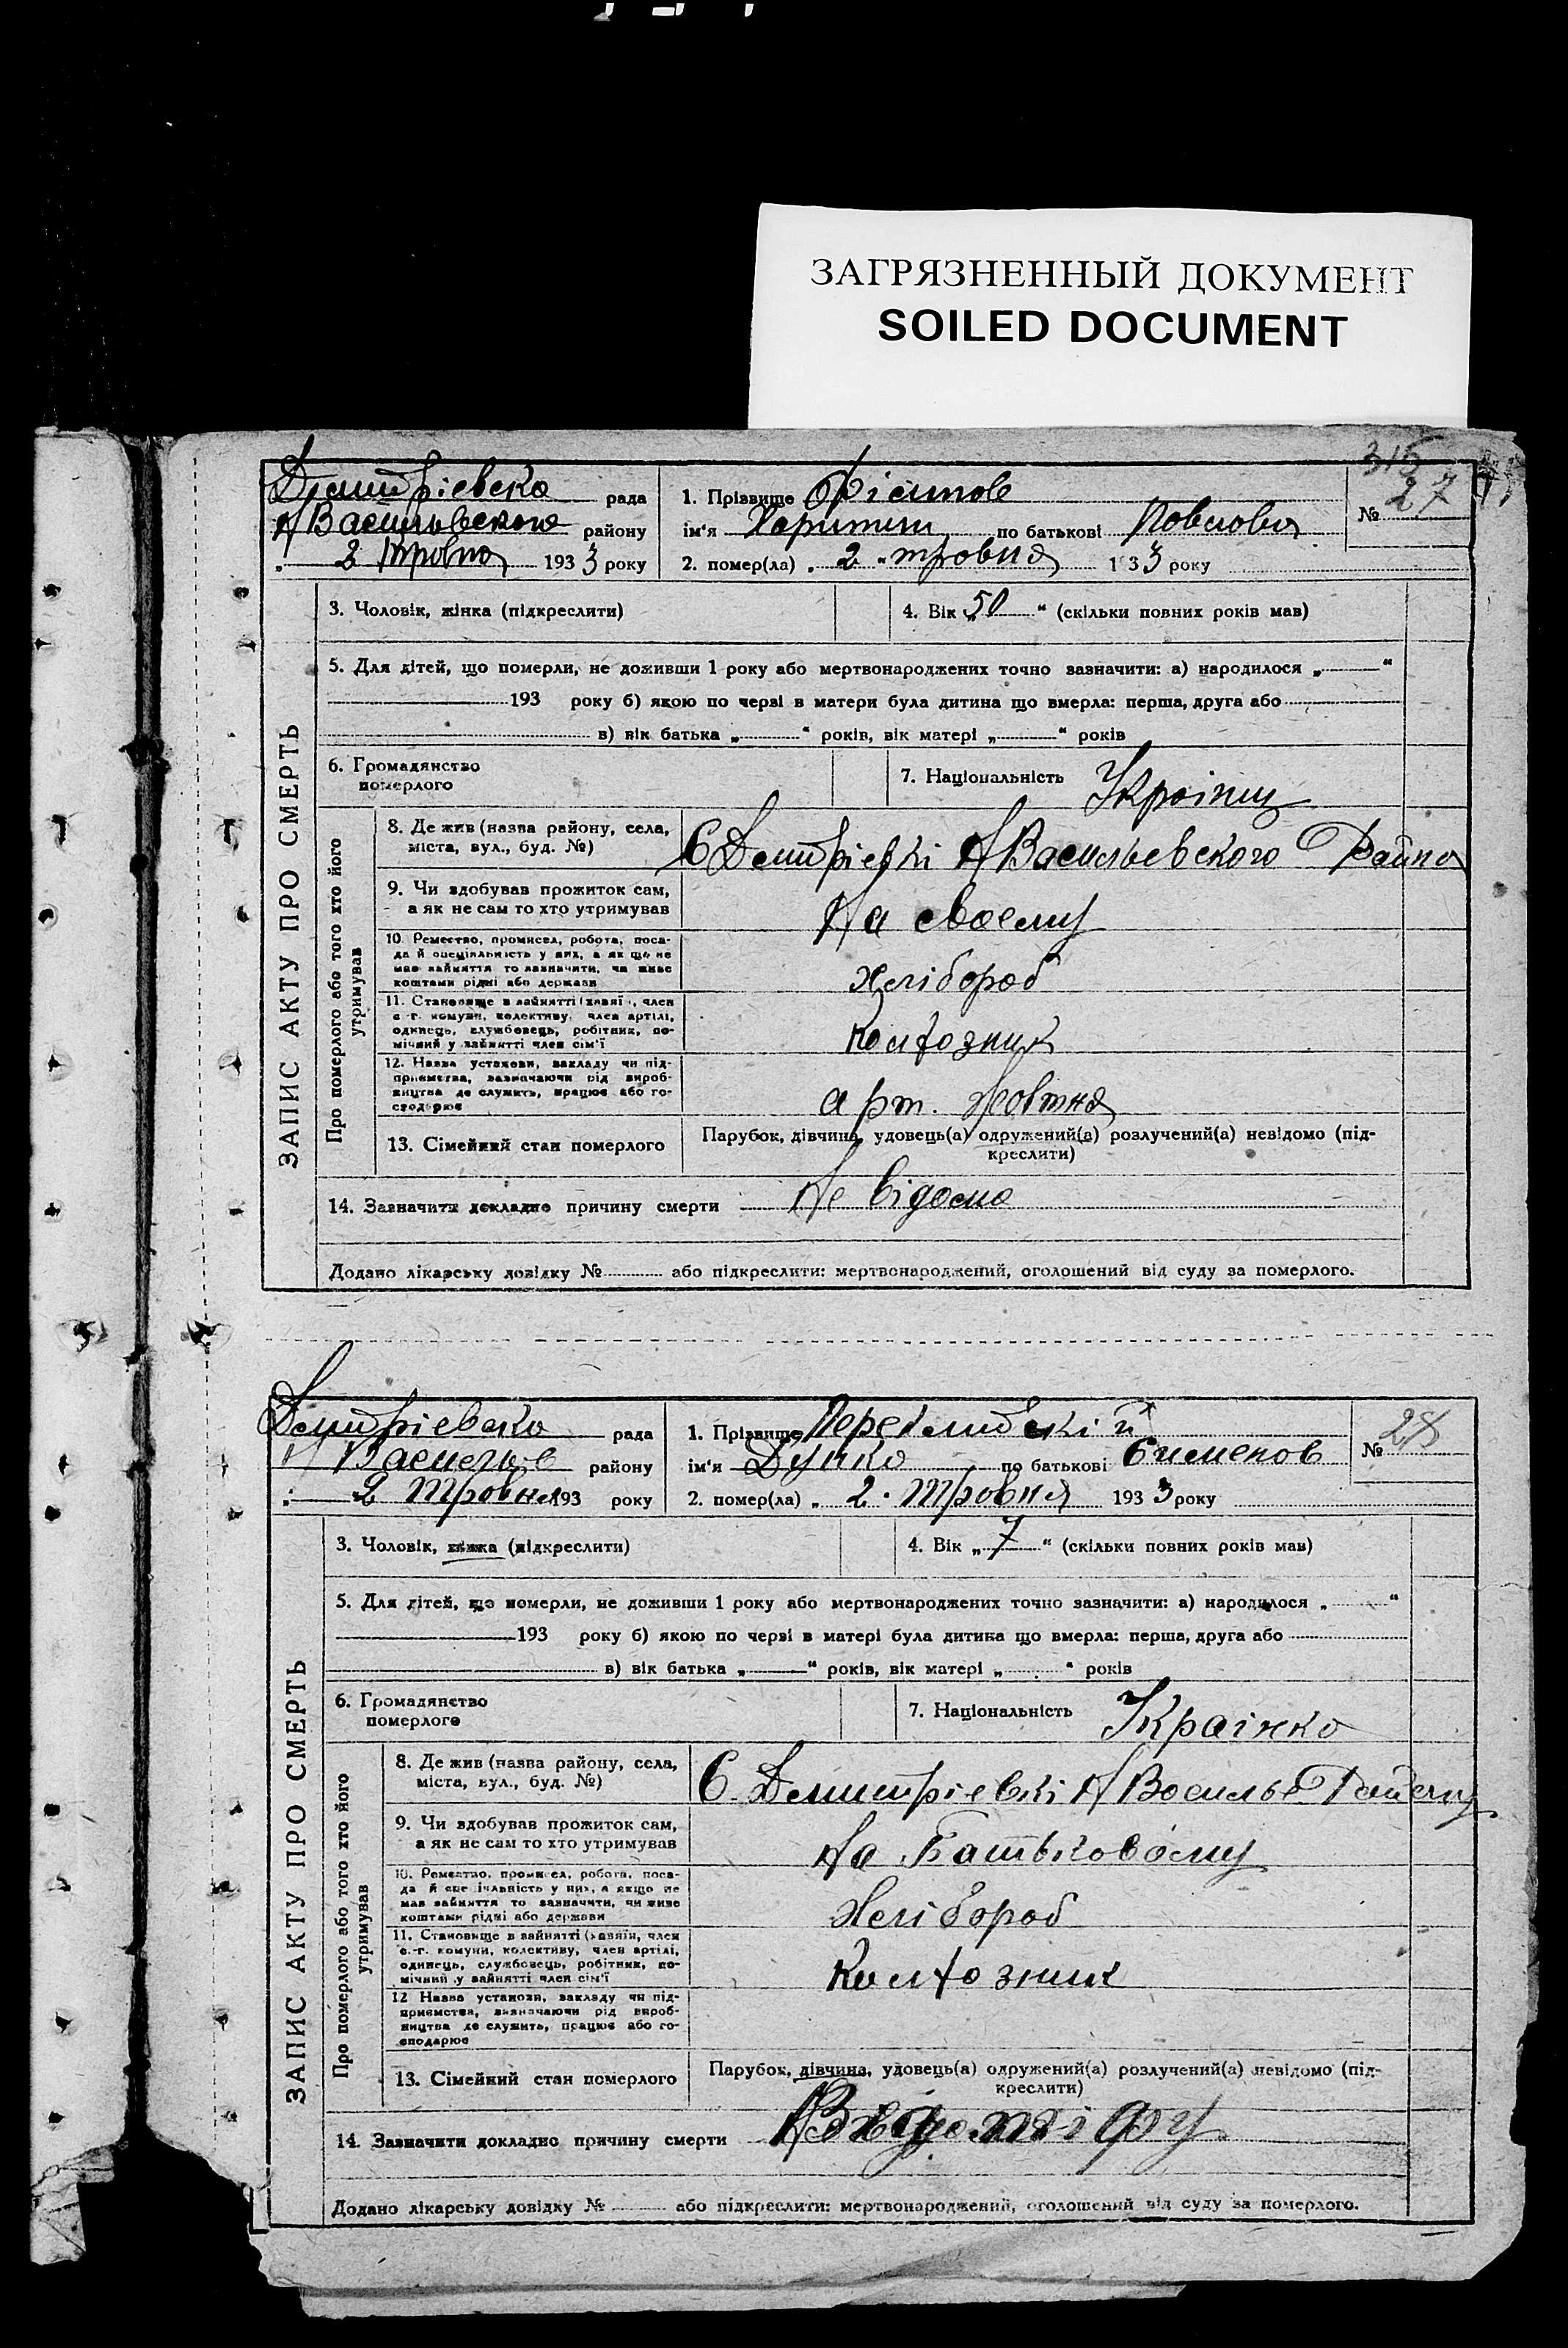 ЗАГРЯЗНЕННЫЙ ДОКУМЕНТ
SOILED DOCUMENT
315
Дмитрієвска рада
Н Васильвського району
2 Травня 1933 року
1. Прізвище
ім'я Харитин по батькові Повлова
2. помер(ла) „ 2 " травня 1933 року
№ 27
ЗАПИС АКТУ ПРО СМЕРТЬ
3. Чоловік, жінка (підкреслити)
4. Вік „50" (скільки повних років мав)
5. Для дітей, що померли, не доживши 1 року або мертвонароджених точно зазначити: а) народилося „ "
193 року б) якою по черзі в матери була дитина що вмерла: перша, друга або
в) вік батька „ " років, вік матері „ " років
6. Громадянство
померлого
7. Національність Україниц
Про померлого або того хто його
утримував
8. Де жив (назва району, села,
міста, вул., буд. №)
С Дмитрієвкі Н Васильевского Району
9. Чи здобував прожиток сам,
а як не сам то хто утримував
На своему
10. Ремество, промисел, робота, поса-
да й спеціяльність у них, а як що не
мав зайняття то зазначити, чи живе
коштами рідні або держави
хлібороб
11. Становище в зайнятті (хазяїн, член
с.-г. комуни, колективу, член артілі,
одинець, службовець, робітник, по-
мічний у зайнятті член сім'ї
Колхозник
12. Назва установи, закладу чи під-
приємства, зазначаючи рід вироб-
ництва де служить, працює або го-
сподарює
арт. Жовтня
13. Сімейний стан померлого
Парубок, дівчина, удовець(а) одружений(а) розлучений(а) невідомо (під-
креслити)
14. Зазначити докладно причину смерти Не відомо
Додано лікарську довідку № або підкреслити: мертвонароджений, оголошений від суду за померлого.
Дмитрієвска рада
Н Васильев району
2 Травня 193 року
1. Прізвище
ім'я Дунка по батькові Сименов
2. помер(ла) „ 2 " Травня 1933 року
№ 28
ЗАПИС АКТУ ПРО СМЕРТЬ
3. Чоловік, жінка (підкреслити)
4. Вік „7" (скільки повних років мав)
5. Для дітей, що померли, не доживши 1 року або мертвонароджених точно зазначити: а) народилося „ "
193 року б) якою по черзі в матері була дитина що вмерла: перша, друга або
в) вік батька „ " років, вік матері „ " років
6. Громадянство
померлого
7. Національність Українко
Про померлого або того хто його
утримував
8. Де жив (назва району, села,
міста, вул., буд. №)
С. Дмитрієвкі Н Василье
9. Чи здобував прожиток сам,
а як не сам то хто утримував
На Батьковому
10. Ремество, промисел, робота, поса-
да й спеціяльність у них, а якщо не
мав зайняття то зазначити, чи живе
коштами рідні або держави
Хлібороб
11. Становище в зайнятті (хазяїн, член
с.-г. комуни, колективу, член артілі,
одинець, службовець, робітник, по-
мічний у зайнятті член сім'ї
Колхозник
12 Назва установи, закладу чи під-
приємства, зазначаючи рід вироб-
ництва де служить, працює або го-
сподарює
13. Сімейний стан померлого
Парубок, дівчина, удовець(а) одружений(а) розлучений(а) невідомо (під-
креслити)
14. Зазначити докладно причину смерти
Додано лікарську довідку № або підкреслити: мертвонароджений, оголошений від суду за померлого.